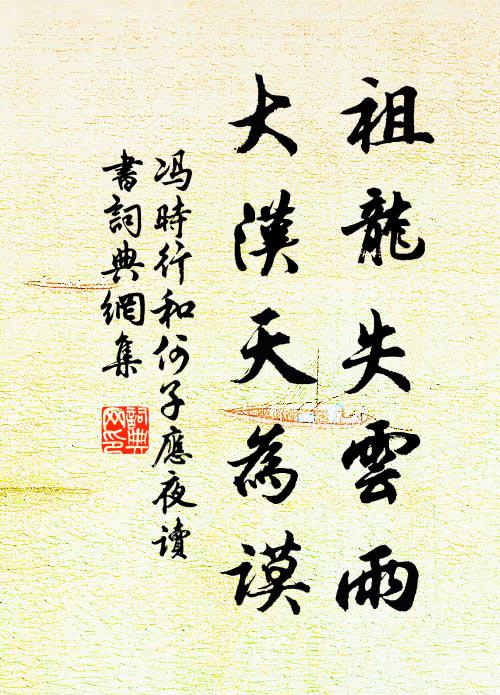 祖龍失雲雨
大漢天為謨
冯時行和何子應夜读
書詞典網集
詞典
网印